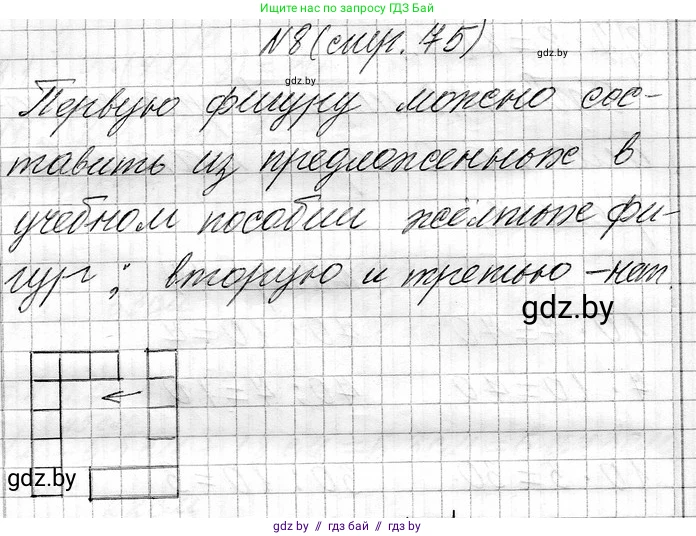 Ищите нас в поиске по запросу ГДЗ Бай
N8 (стр. 75)
gdz.by
gdz.by
Первую фигуру можно сос-
тавить из предложенных в
учебном пособии жёлтых фи-
гур, вторую и третью - нет.
gdz.by
gdz.by
gdz.by // гдз бай // гдз by